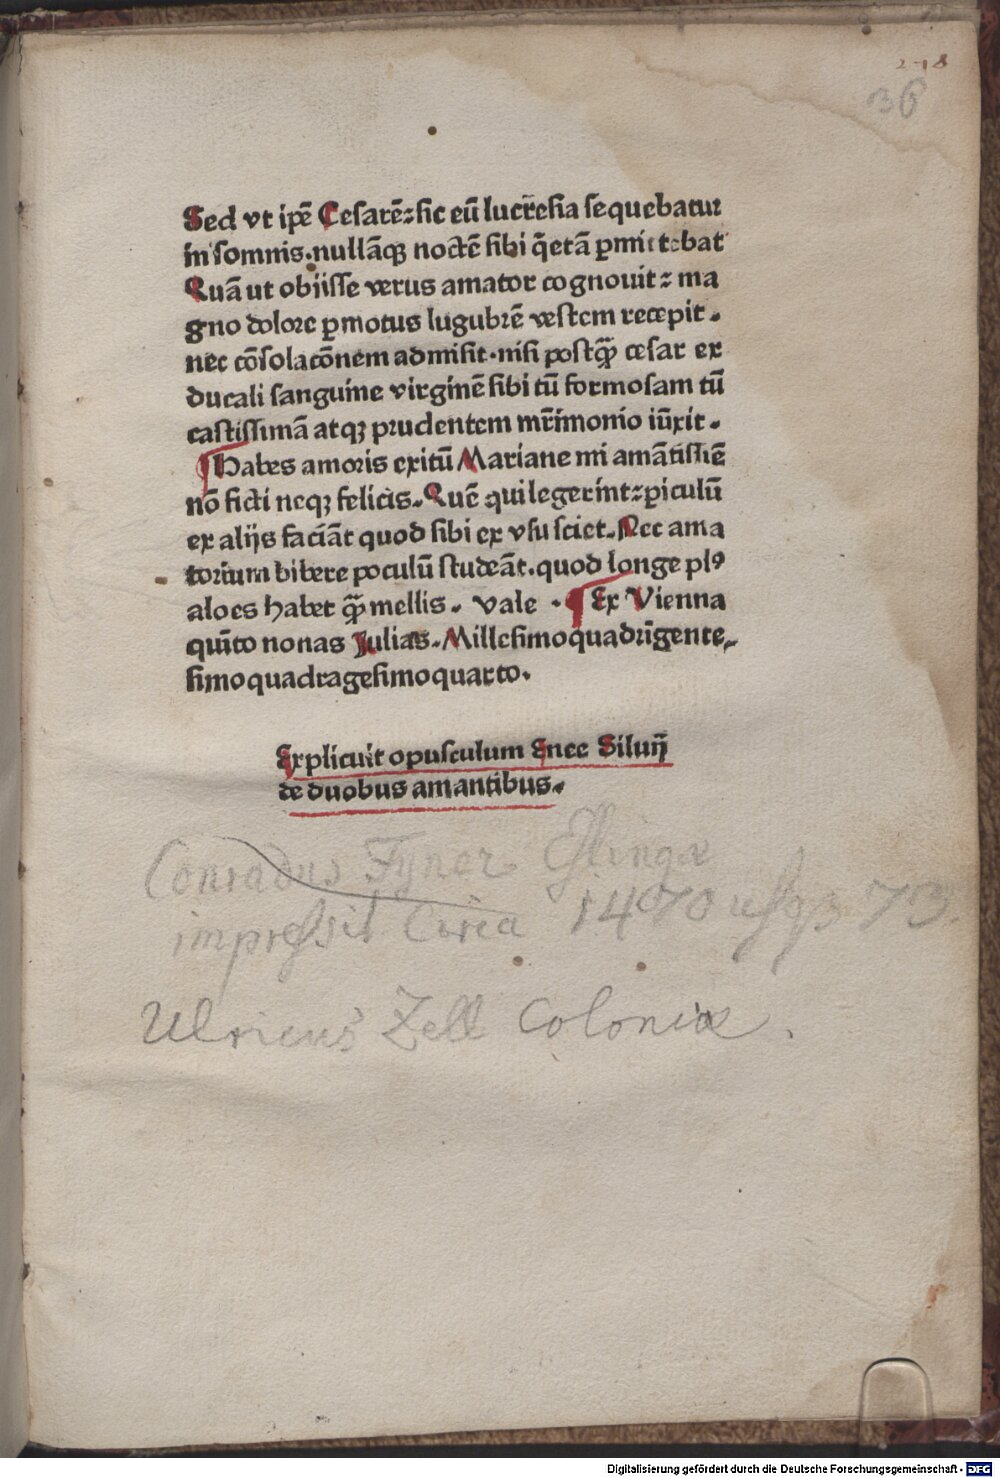 2-18
36
Sed vt ipẽ Cesarẽ: sic eũ lucr̃esia sequebatur
in somnis. nullãqȝ noctẽ sibi q̃etã ꝑmittebat
Quã ut obijsse verus amator cognouit: ma
gno dolore ꝑmotus lugubrẽ vestem recepit.
nec cõsolacõnem admisit. nisi postq̃ȝ cesar ex
ducali sanguine virginẽ sibi tũ formosam tũ
castissimã atqȝ prudentem mr̃imonio iũxit.
Habes amoris exitũ Mariane mi amãtissiẽ
nõ ficti neqȝ felicis. Quẽ qui legerint: ꝑiculũ
ex alijs faciãt quod sibi ex vsu sciet. Nec ama
torium bibere poculũ studeãt. quod longe plꝰ
aloes habet q̃ȝ mellis. vale. Ex Vienna
quĩto nonas Julias. Millesimoquadrĩgente,
simoquadragesimoquarto.
Explicuit opusculum Enee Siluij̃
de duobus amantibus.
Conradus Fyner Esslingæ
impressit Circa 1470 usqȝ 73.
Ulricus Zell Coloniæ.
Digitalisierung gefördert durch die Deutsche Forschungsgemeinschaft - DFG